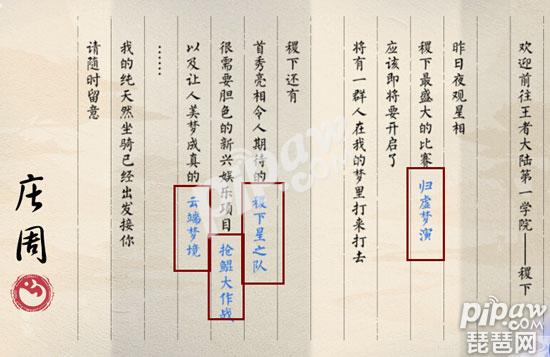 欢迎前往王者大陆第一学院——稷下
昨日夜观星相
稷下最盛大的比赛归虚梦演
应该即将要开启了
将有一群人在我的梦里打来打去
稷下还有
首秀亮相令人期待的稷下星之队
很需要胆色的新兴娱乐项目抢鲲大作战
以及让人美梦成真的云端梦境
……
我的纯天然坐骑已经出发接你
请随时留意
庄周
pipaw.com
pipaw
琵琶网